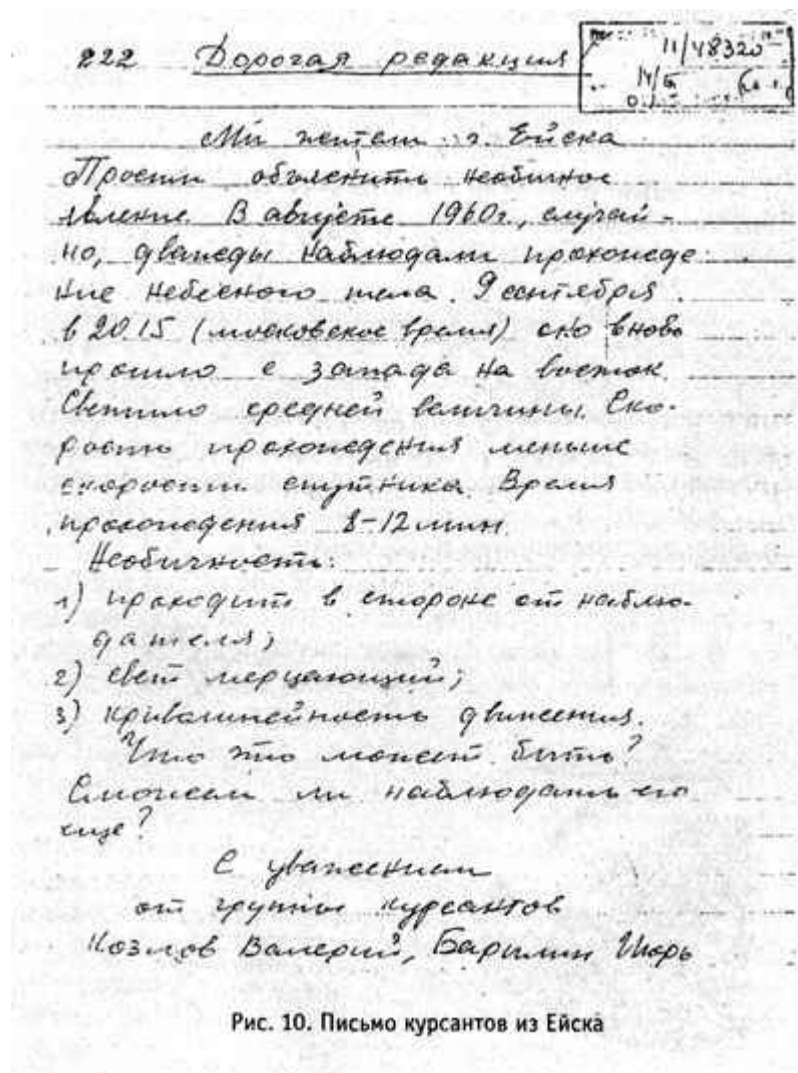 222 Дорогая редакция
11/48320
14/5
Ми жители г. Ейска
Просим объяснить необичное
явление. В августе 1960г., случай-
но, дважды наблюдали прохожде
ние небесного тела. 9 сентября
в 20.15 (московское время) оно вновь
прошло с запада на восток.
Светило средней величины. Ско-
рость прохождения меньше
скорости спутника. Время
прохождения 8-12 мин.
Необичность:
1) проходит в стороне от наблю-
дателя;
2) свет мерцающий;
3) криволинейность движения.
Что это может быть?
Сможем ли наблюдать его
еще?
С уважением
от групы курсантов
Козлов Валерий, Игорь
Рис. 10. Письмо курсантов из Ейска